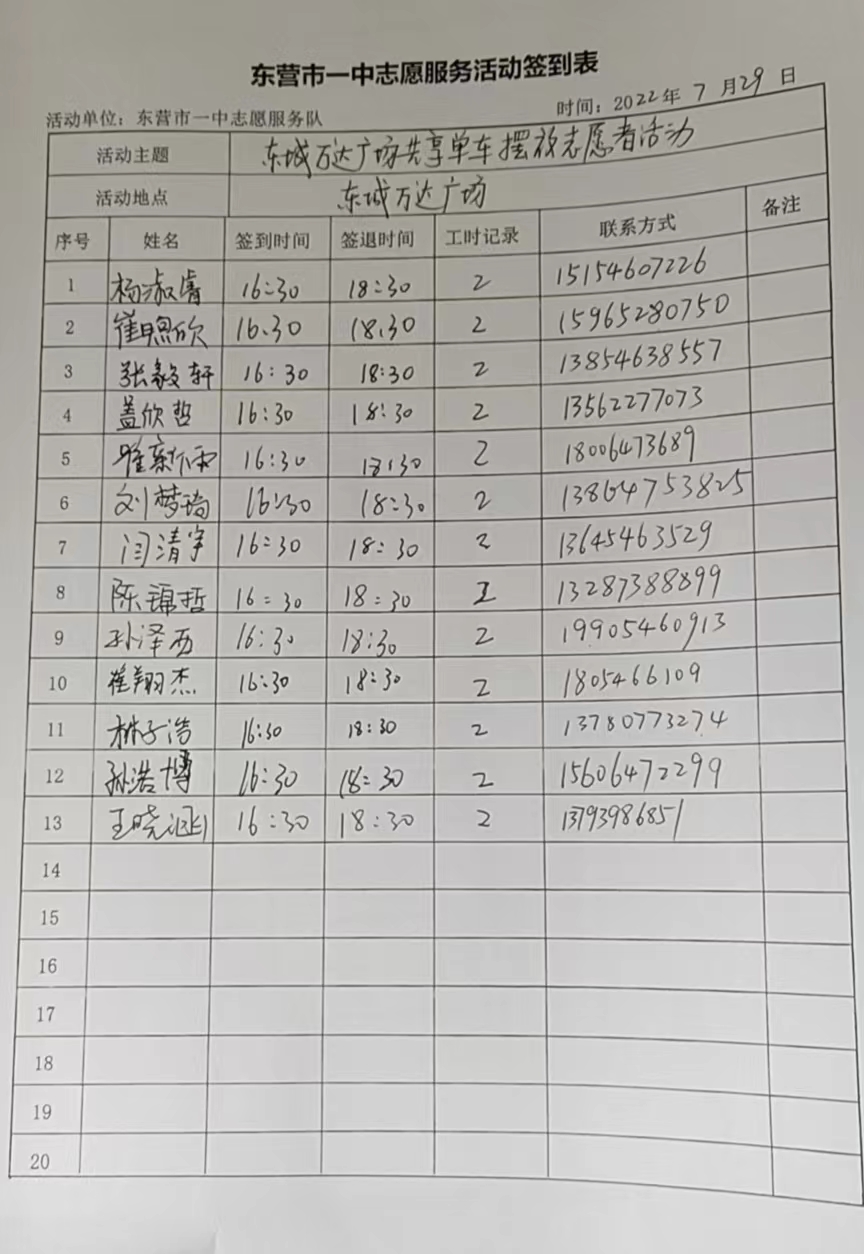 东营市一中志愿服务活动签到表
活动单位：东营市一中志愿服务队 时间：2022年 7 月29 日
活动主题 东城万达广场共享单车摆放志愿者活动
活动地点 东城万达广场
序号 姓名 签到时间 签退时间 工时记录 联系方式 备注
1 杨淑睿 16:30 18:30 2 15154607226
2 崔照欣 16:30 18:30 2 15965280750
3 张毅轩 16:30 18:30 2 13854638557
4 盖欣哲 16:30 18:30 2 13562277073
5 16:30 18:30 2 18006473689
6 刘梦琦 16:30 18:30 2 13864753825
7 闫清宇 16:30 18:30 2 13645463529
8 陈锦哲 16:30 18:30 2 13287388899
9 孙泽西 16:30 18:30 2 19905460913
10 崔翔杰 16:30 18:30 2 1805466109
11 林子浩 16:30 18:30 2 13780773274
12 孙浩博 16:30 18:30 2 15606472299
13 王晓涵 16:30 18:30 2 13793986851
14
15
16
17
18
19
20